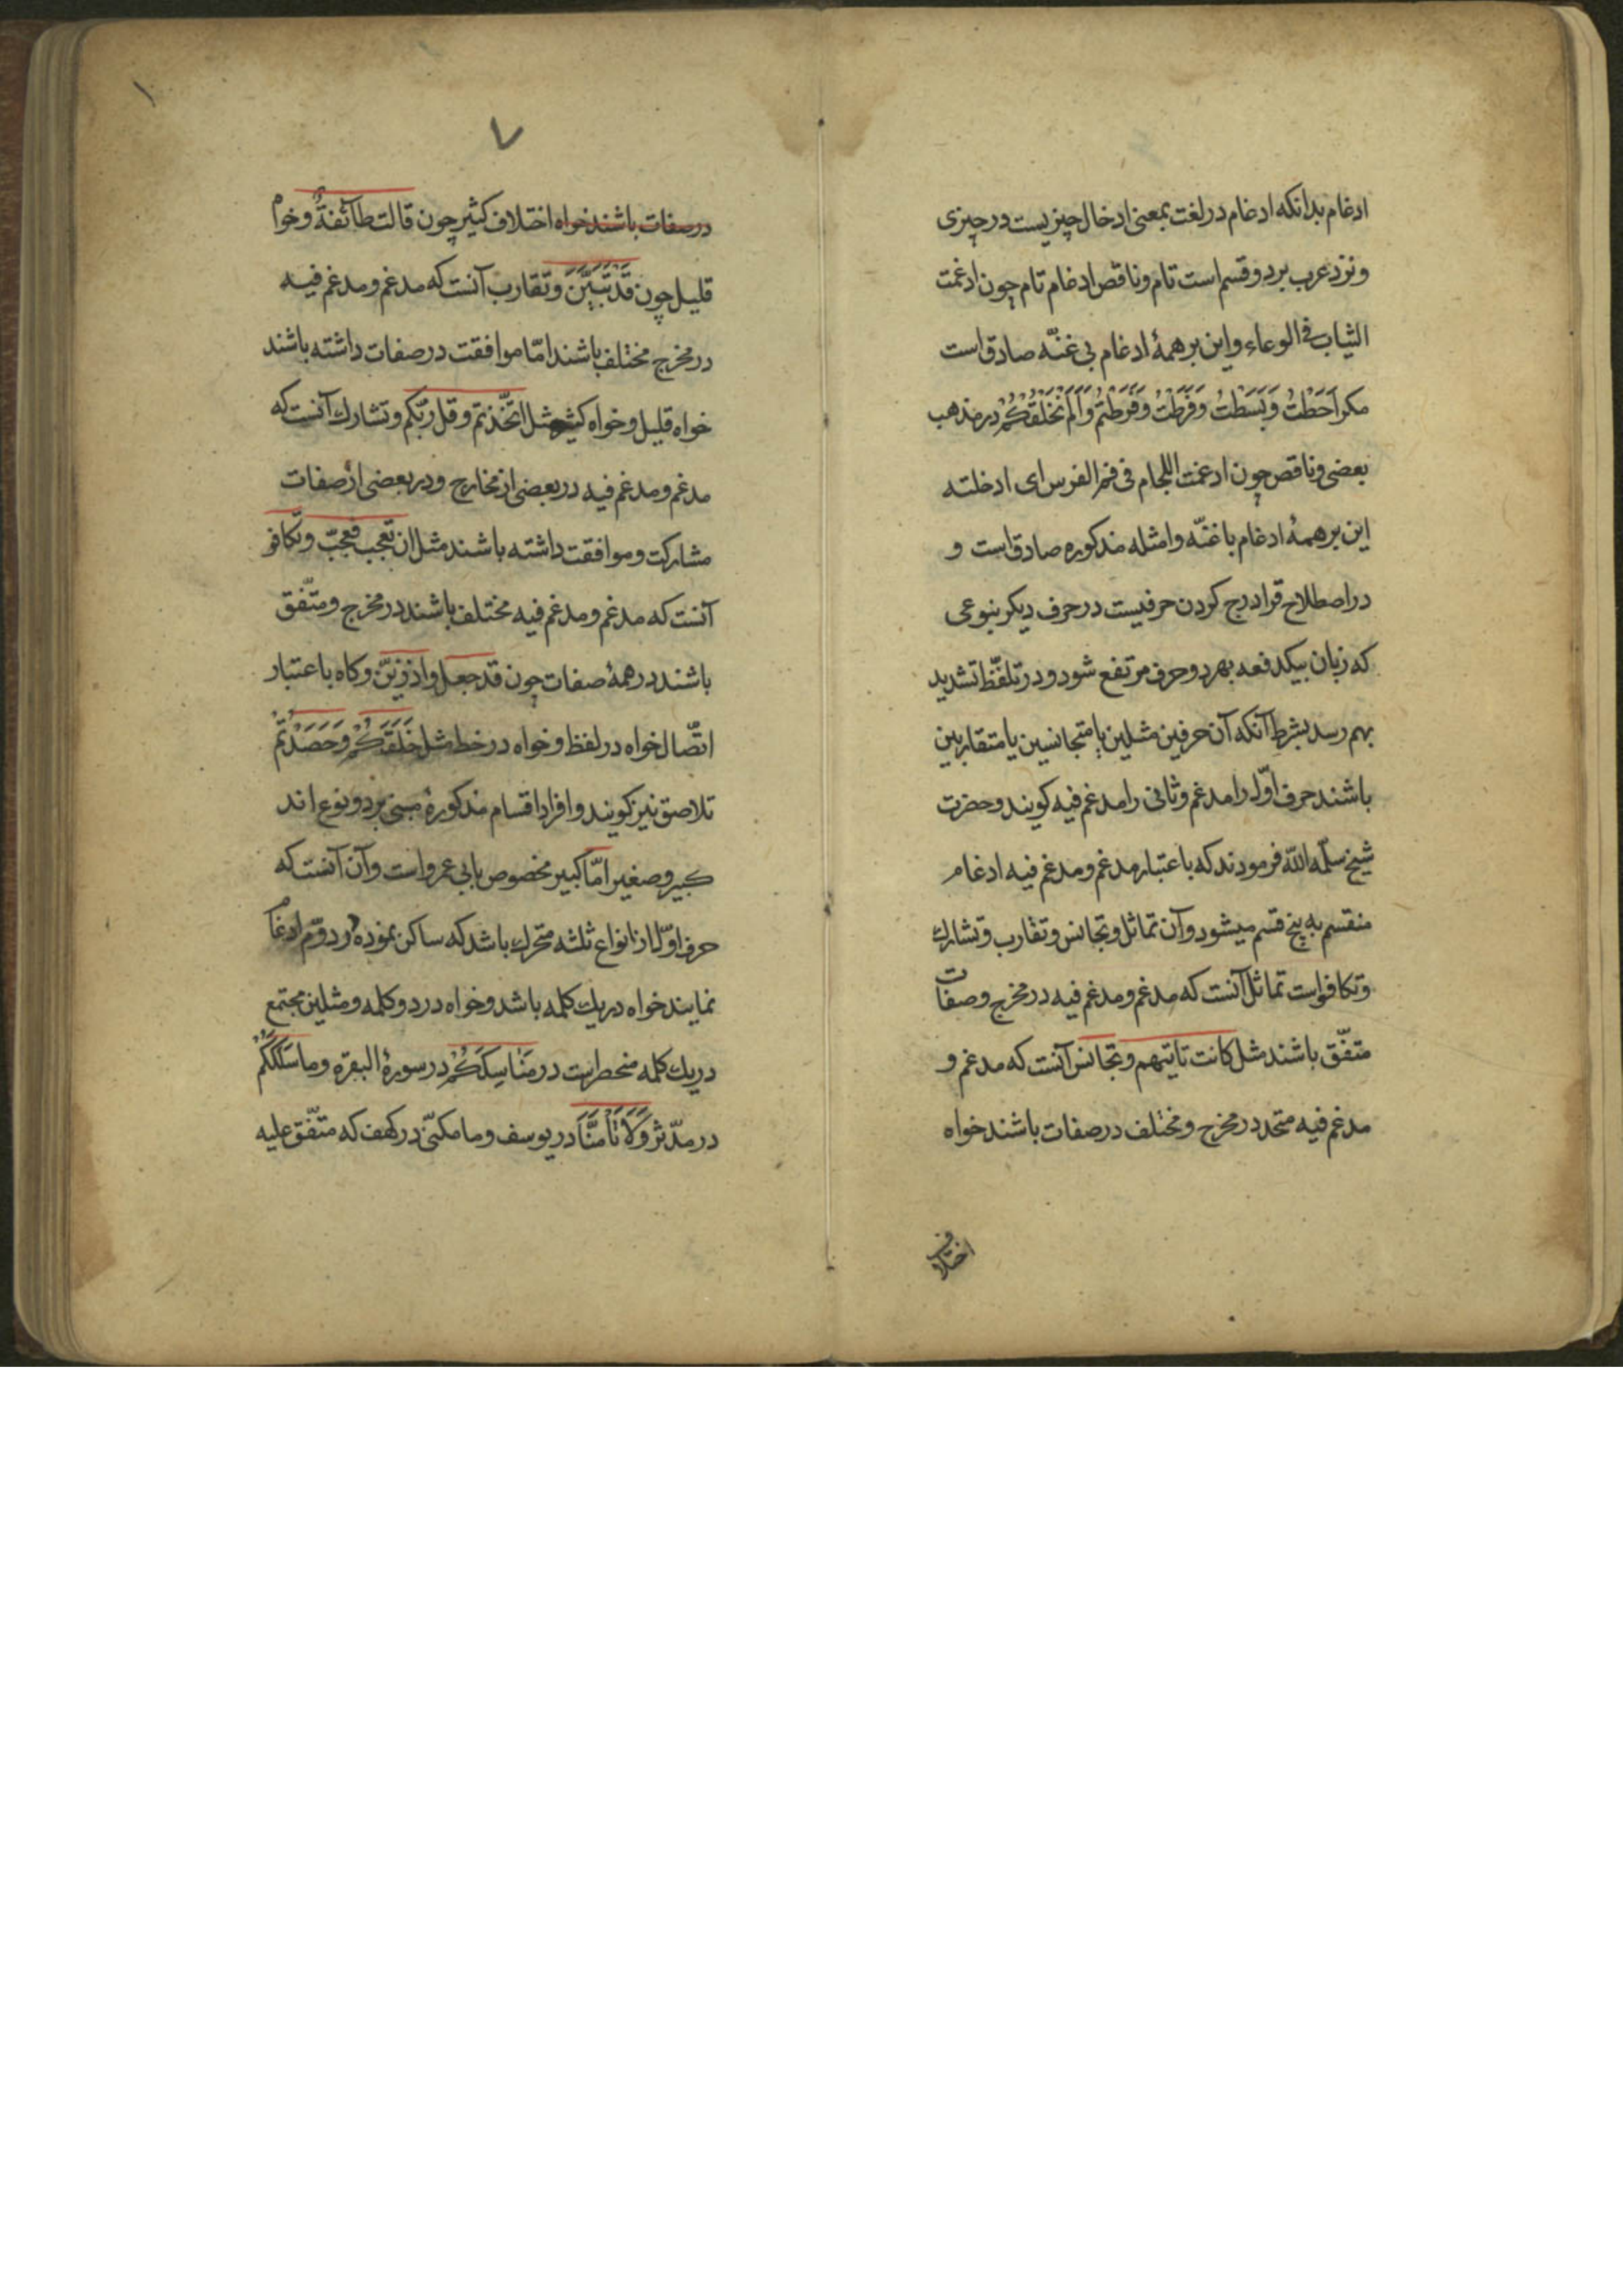 ادغام بدانکه ادغام در لغت بمعنی ادخال چیزیست در چیزی
و نزد عرب بر دو قسم است تام و ناقص ادغام تام چون ادغمت
الثیاب فی الوعاء و این بر همهٔ ادغام بی غنّه صادق است
مکر اَحَطْتُ وَ بَسَطْتُ وَ فَرَّطْتُ وَ فَرَّطْتُمْ وَ اَلَمْ نَخْلُقْکُمْ در مذهب
بعضی و ناقص چون ادغمت اللجام فی فم الفرس ای ادخلته
این بر همهٔ ادغام با غنّه و امثله مذکوره صادق است و
در اصطلاح قرا درج کردن حرفیست در حرف دیکر بنوعی
که زبان بیکدفعه بهر دو حرف مرتفع شود و در تلفّظ تشدید
بهم رسد بشرط آنکه آن حرفین مثلین یا متجانسین یا متقاربین
باشند حرف اوّل را مدغم و ثانی را مدغم فیه کویند و حضرت
شیخ سلّمه اللّه فرمودند که باعتبار مدغم و مدغم فیه ادغام
منقسم به پنج قسم میشود و آن تماثل و تجانس و تقارب و تشارك
و تکافو است تماثل آنست که مدغم و مدغم فیه در مخرج و صفات
متفّق باشند مثل کانت تاتیهم و تجانس آنست که مدغم و
مدغم فیه متحد در مخرج و مختلف در صفات باشند خواه
اختلاف
۱
۷
در صفات باشند خواه اختلاف کثیر چون قالت طآئفةٌ و خواه
قلیل چون قَدْ تَبَیَّنَ و تقارب آنست که مدغم و مدغم فیه
در مخرج مختلف باشند امّا موافقت در صفات داشته باشند
خواه قلیل و خواه کثیر مثل اتّخذتم و قل ربّکم و تشارك آنست که
مدغم و مدغم فیه در بعضی از مخارج و در بعضی از صفات
مشارکت و موافقت داشته باشند مثل ان تعجب فعجبٌ و تکافو
آنست که مدغم و مدغم فیه مختلف باشند در مخرج و متّفق
باشند در همهٔ صفات چون قد جعل و اذ زیّن و کاه باعتبار
اتّصال خواه در لفظ و خواه در خط مثل خَلَقَکُمْ وَ حَصَدْتُمْ
تلاصق نیز کویند و افراد اقسام مذکوره مبنی بر دو نوع اند
کبیر و صغیر امّا کبیر مخصوص بابی عمرو است و آن آنست که
حرف اوّل از انواع ثلثه متحرك باشد که ساکن نموده در دوّم ادغام
نمایند خواه در یك کلمه باشد و خواه در دو کلمه و مثلین مجتمع
در یك کلمه منحصر است در مَنَاسِکَکُمْ در سورهٔ البقره و ما سَلَکَکُمْ
در مدّثر وَ لَا تَأْمَنَّا در یوسف و ما مکنّی در کهف که متّفق علیه